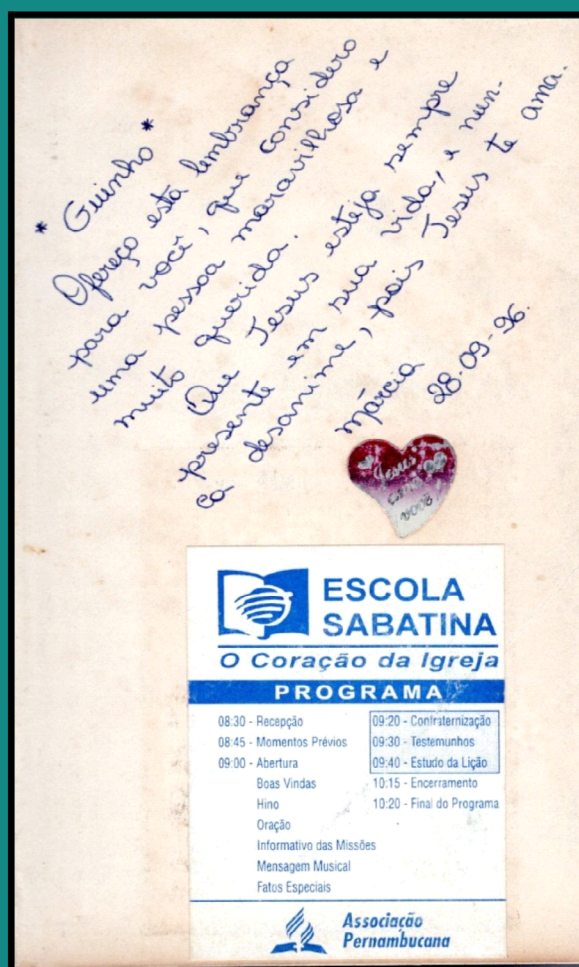 * Guinho *
Ofereço esta lembrança
para você, que considero
uma pessoa maravilhosa e
muito querida.
Que Jesus esteja sempre
presente em sua vida, e nun-
ca desanime, pois Jesus te ama.
Márcia 28-09-96.
Jesus
ama
você!
ESCOLA
SABATINA
O Coração da Igreja
PROGRAMA
08:30 - Recepção
08:45 - Momentos Prévios
09:00 - Abertura
Boas Vindas
Hino
Oração
Informativo das Missões
Mensagem Musical
Fatos Especiais
09:20 - Confraternização
09:30 - Testemunhos
09:40 - Estudo da Lição
10:15 - Encerramento
10:20 - Final do Programa
Associação
Pernambucana